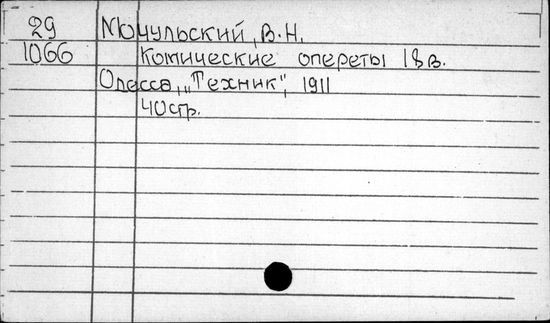 29 Мочульский, В.Н.
1066 Комические опереты 18в.
Одесса, „Техник", 1911
40стр.